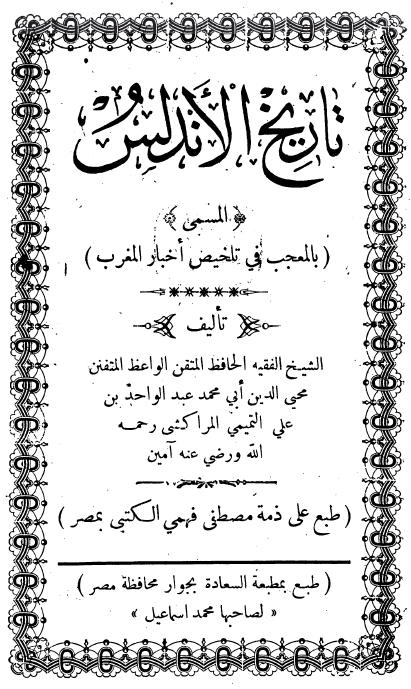 تاريخ الأندلس
﴿ المسمى ﴾
( بالمعجب في تلخيص أخبار المغرب )
تأليف
الشيخ الفقيه الحافظ المتقن الواعظ المتفنن
محيى الدين أبي محمد عبد الواحد بن
علي التميمي المراكشى رحمه
الله ورضي عنه آمين
( طبع على ذمة مصطفى فهمي الكتبى بمصر )
( طبع بمطبعة السعادة بجوار محافظة مصر )
« لصاحبها محمد اسماعيل »